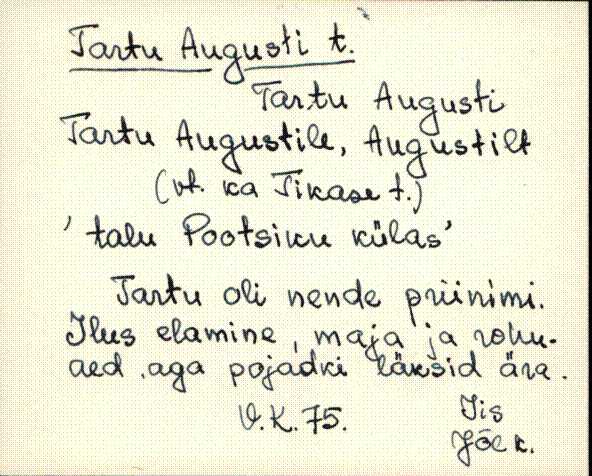 Tartu Augusti t.
Tartu Augusti
Tartu Augustile, Augustilt
(vt. ka Tikase t.)
'talu Pootsiku külas'
Tartu oli nende priinimi.
Ilus elamine, maja ja rohu-
aed, aga pojadki läksid ära.
V.K. 75. Iis
Jõe k.